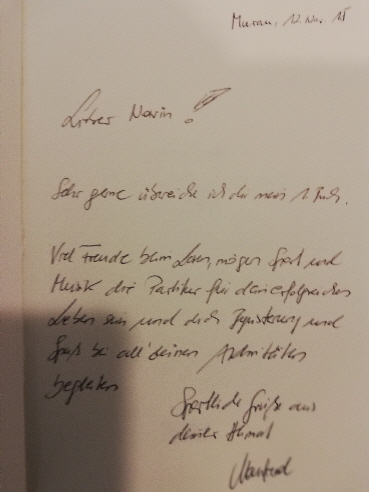 Murau, 12. Nov. 15
Lieber Marin!
Sehr gerne überreiche ich dir mein 1. Buch.
Viel Freude beim Lesen, mögen Sport und
Musik die Partiker für dein erfolgreiches
Leben sein und dich Begeisterung und
Spaß bei all' deinen Aktivitäten
begleiten
Sportliche Grüße aus
deiner Heimat
Manfred